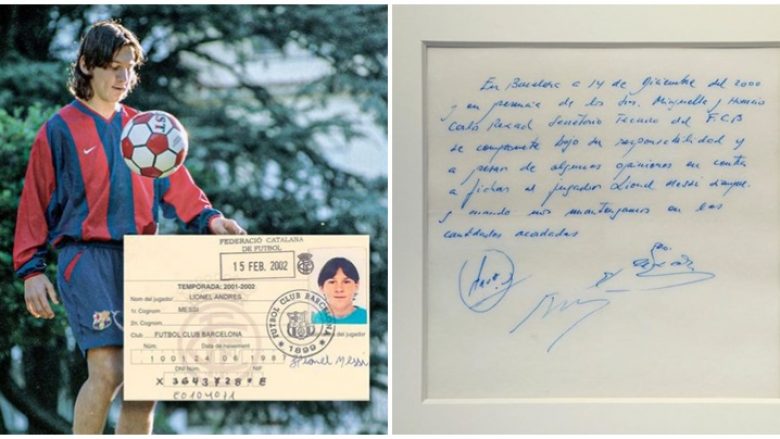 FEDERACIÓ CATALANA
DE FUTBOL
15 FEB. 2002
TEMPORADA: 2001-2002
Nom del jugador LIONEL ANDRES
1r. Cognom MESSI
2n. Cognom
Club FUTBOL CLUB BARCELONA
Número Data de naixement
DNI Núm. NIF
FUTBOL CLUB BARCELONA
1899
del jugador
Lionel Messi
En Barcelona a 14 de Diciembre del 2000
y en presencia de los Srs. Minguella y Horacio
Carlos Rexach Secretario Tecnico del F.C.B
se compromete bajo su responsabilidad y
a pesar de algunas opiniones en contra
a fichar al jugador Lionel Messi siempre
y cuando nos mantengamos en las
cantidades acordadas